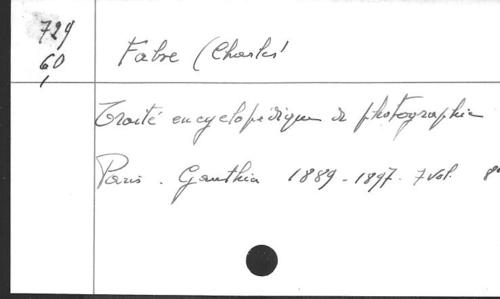 729 Fabre (Charles)
60
Traité encyclopédique de photographie
Paris . Gauthier 1889 - 1897. 7 vol. 8°